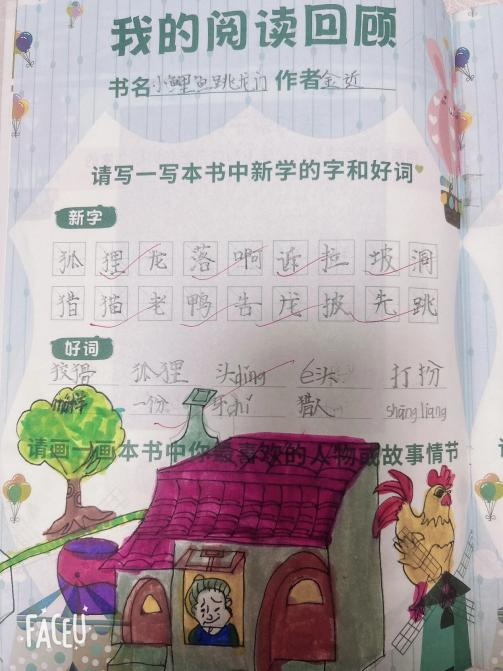 我的阅读回顾
书名小鲤鱼跳龙门 作者金近
请写一写本书中新学的字和好词
新字
狐 狸 龙 落 啊 诉 拉 坡 洞
猎 猫 老 鸭 告 龙 披 先 跳
好词
狡猾 狐狸 头dǐng 打扮
一份 牙chǐ 猎人 shāng liang
请画一画本书中你最喜欢的人物或故事情节
FACEU